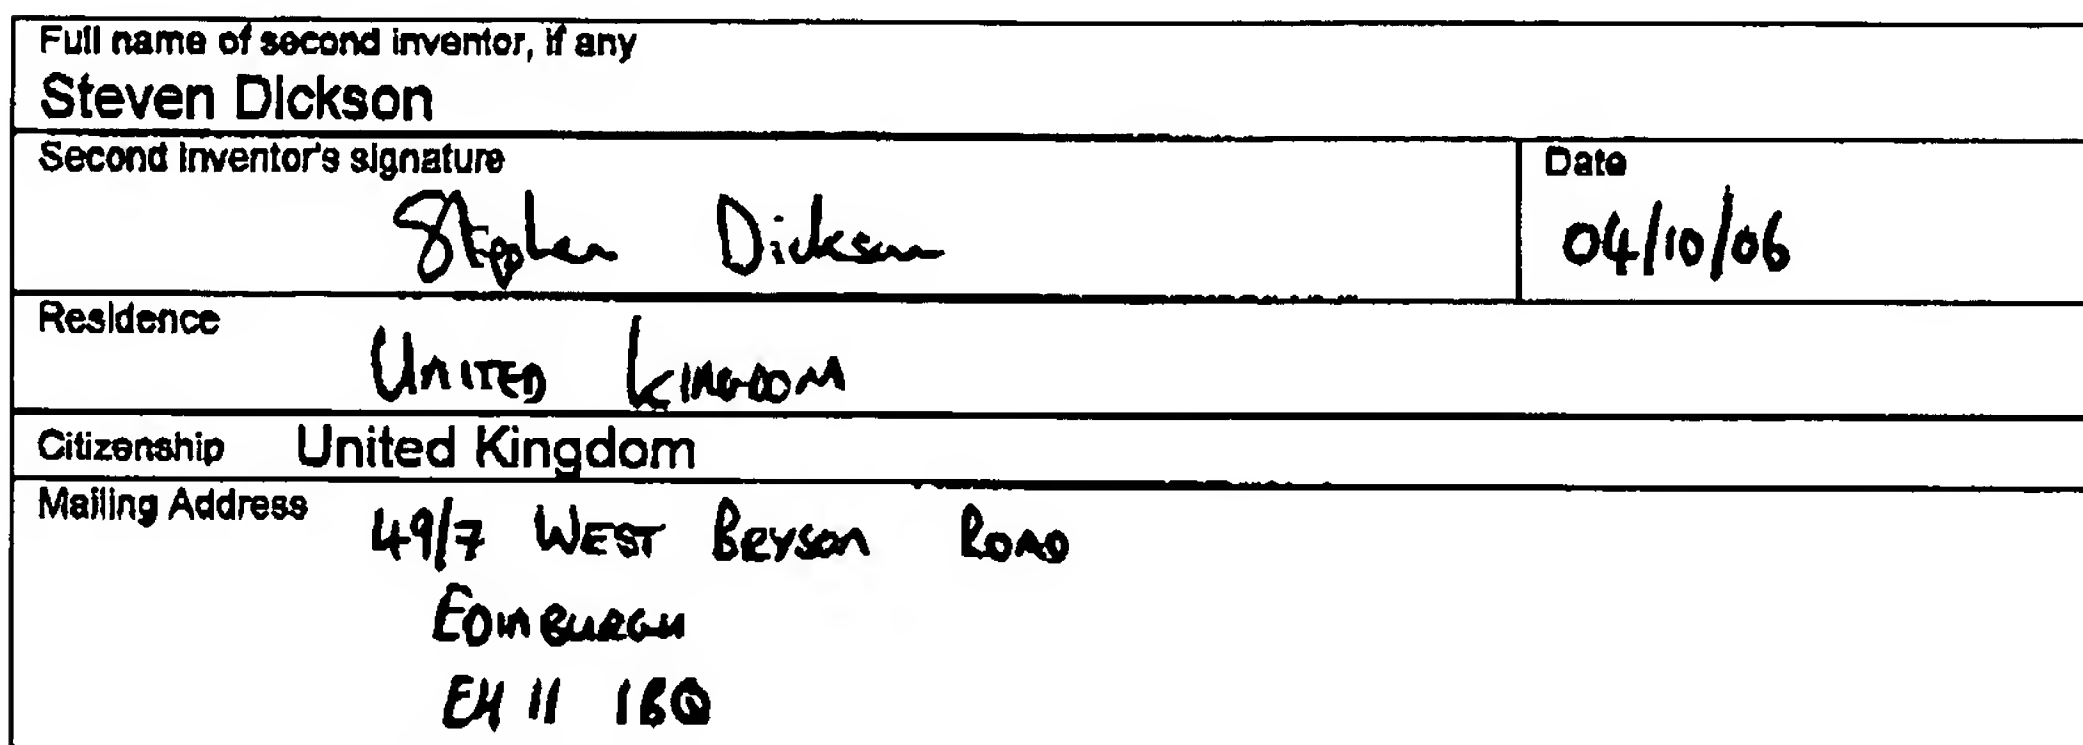 Full name of second inventor, if any
Steven Dickson
Second Inventor's signature
Date
Stephen Dickson
04/10/06
Residence
UNITED KINGDOM
Citizenship United Kingdom
Mailing Address
49/7 WEST BRYSON ROAD
EDINBURGH
EH11 1BQ